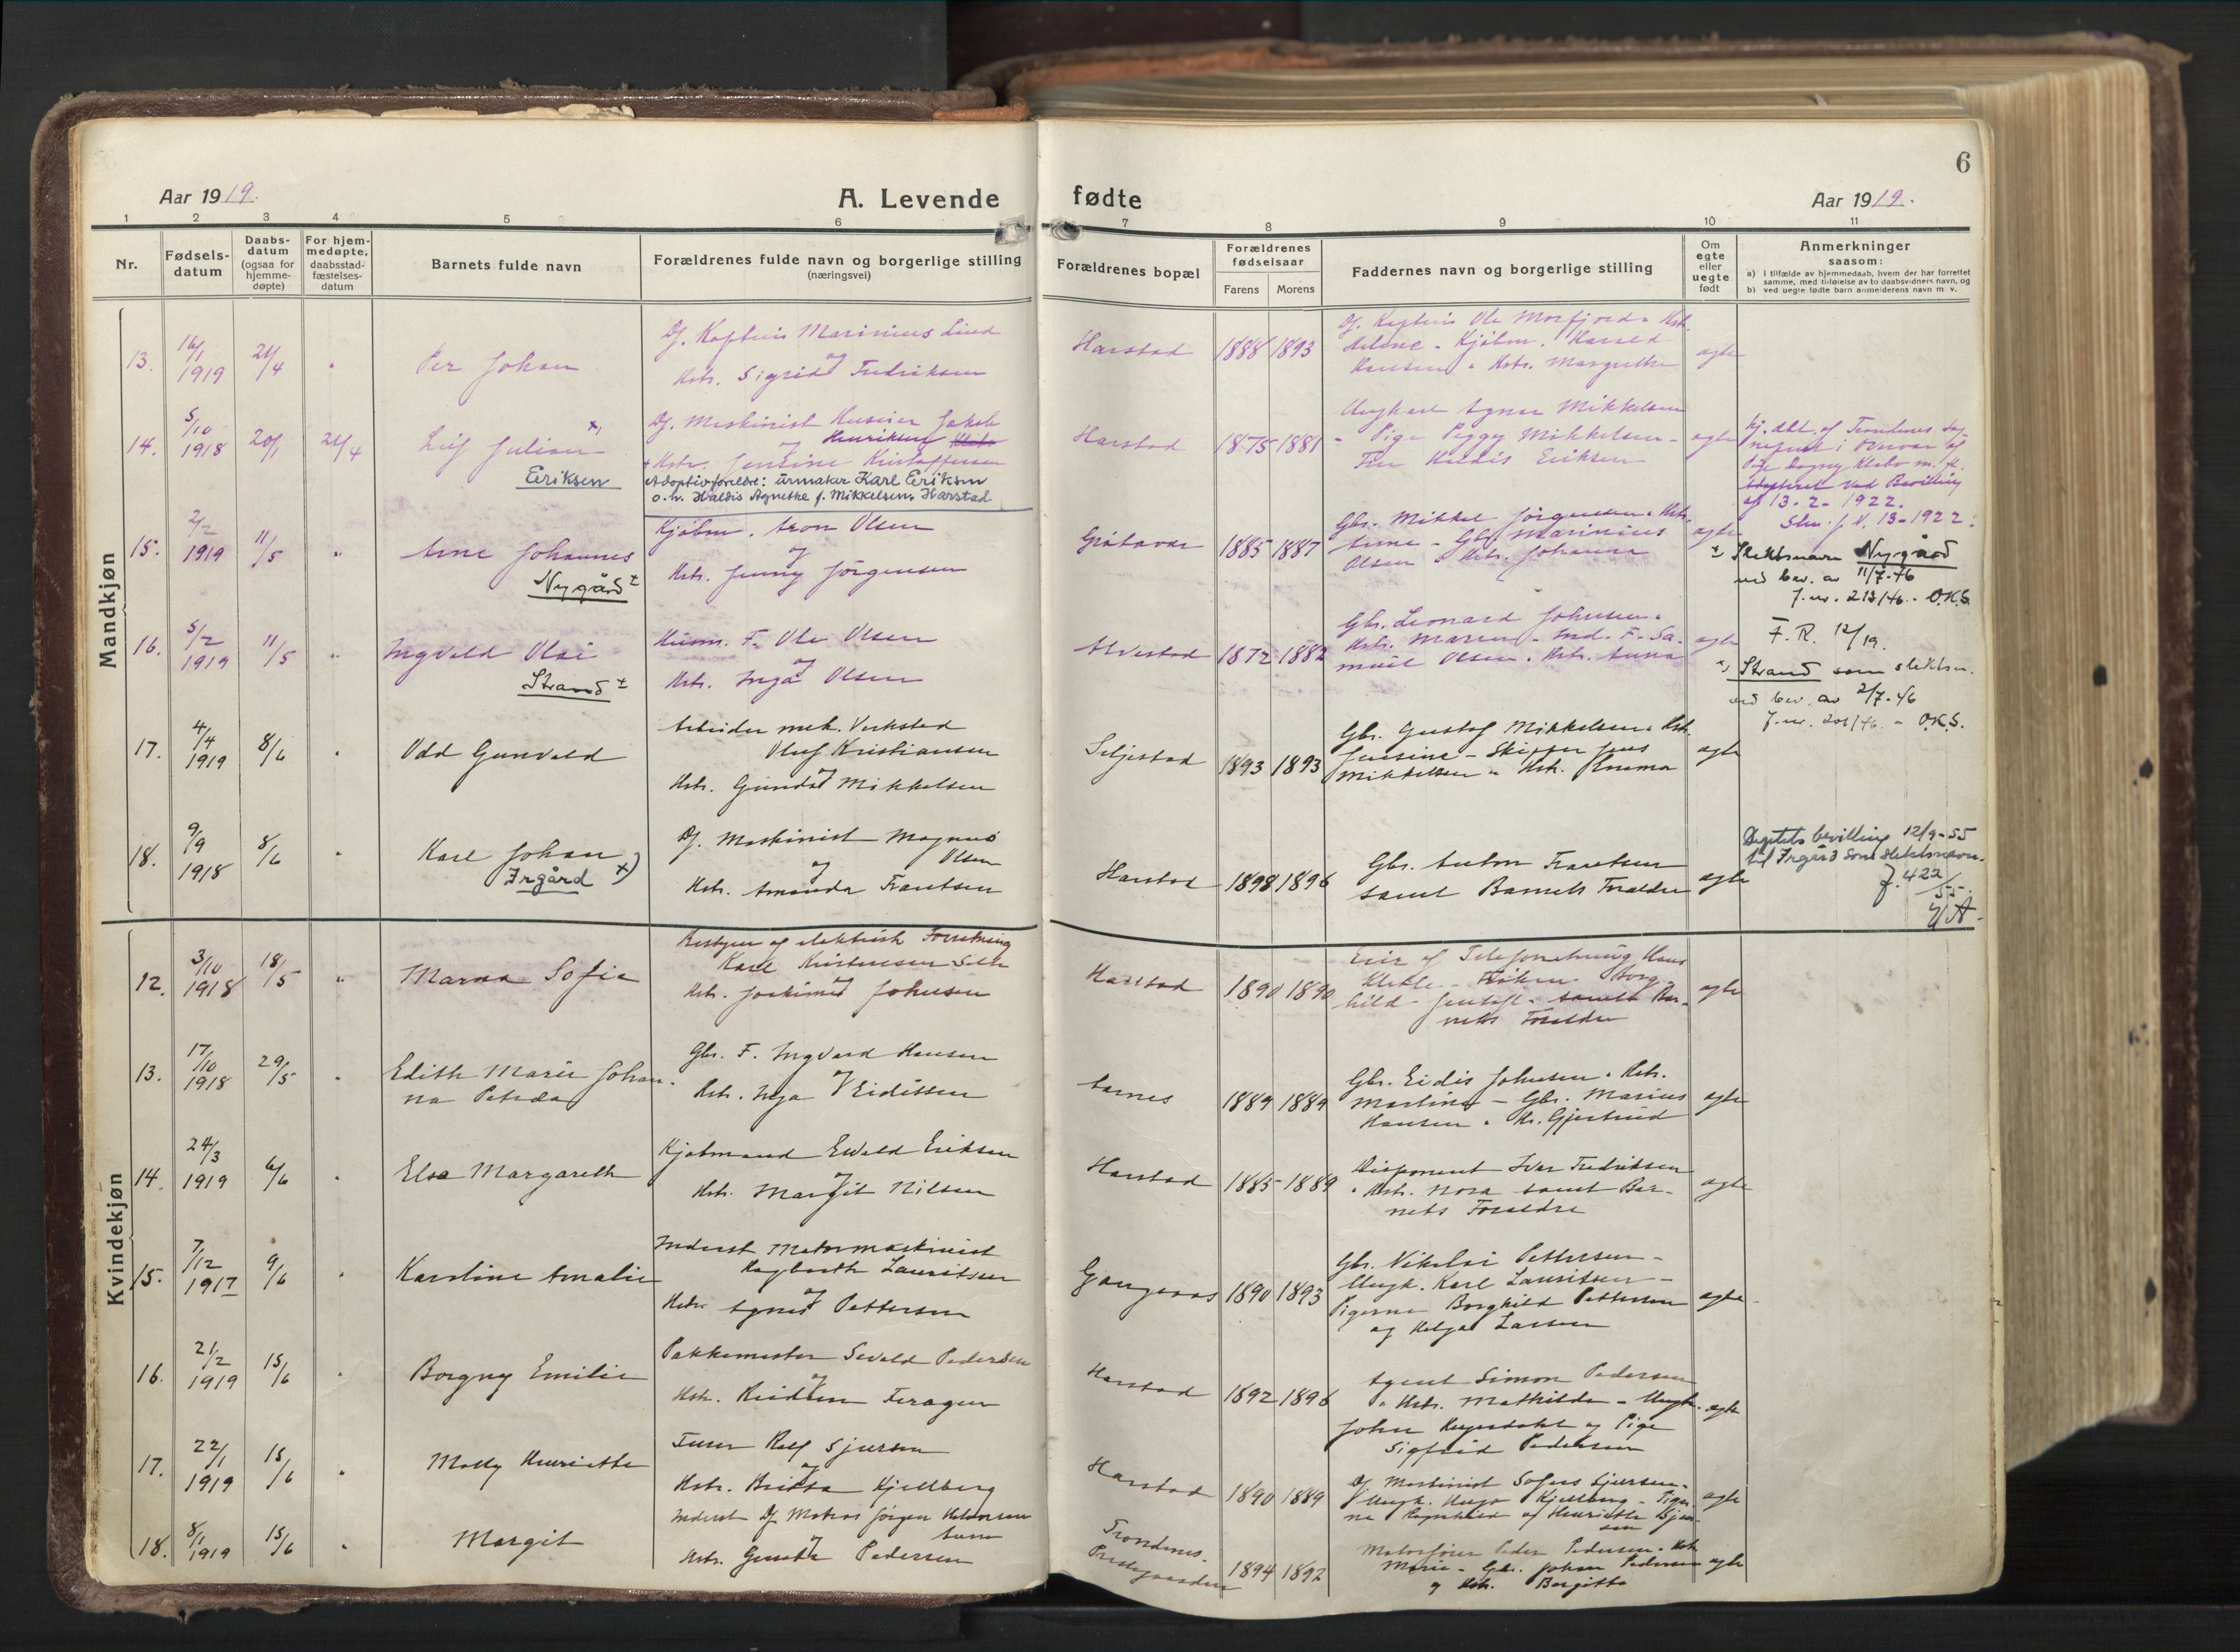 6
Aar 1919.
A. Levende fødte
Aar 1919.
1 2 3 4 5 6 7 8 9 10 11
Nr.
Fødsels-
datum
Daabs-
datum
(ogsaa for
hjemme-
døpte)
For hjem-
medøpte,
daabsstad-
fæstelses-
datum
Barnets fulde navn
Forældrenes fulde navn og borgerlige stilling
(næringsvei)
Forældrenes bopæl
Forældrenes
fødselsaar
Farens Morens
Faddernes navn og borgerlige stilling
Om
egte
eller
uegte
født
Anmerkninger
saasom:
a) i tilfælde av hjemmedaab, hvem der har forrettet
samme, med tilføielse av to daabsvidners navn, og
b) ved uegte fødte barn anmelderens navn m. v.
Mandkjøn
13.
16/1
1919
21/4
Per Johan
Df. Kaptein Marinius Lind
og
Hstr. Sigrid Fredriksen
Harstad
1888 1893
Df. Kaptein Ole Morfjord Hstr.
Helene - Kjøbm. Harald
Hansen Hstr. Margrethe
egte
14.
5/10
1918
20/1
21/4
Leif Julian x)
Eriksen
Df. Maskinist Jakob
Henriksen
og
Hstr. Jensine Kristoffersen
Adoptivforeldre: urmaker Karl Eriksen
o.h. Haldis Agnethe f. Mikkelsen, Harstad
Harstad
1875 1881
Ungkarl Agnar Mikkelsen
- Pige Peggy Mikkelsen -
Fru Haldis Eriksen
egte
Adopteret ved Bevilling
af 13-2-1922.
J. N. 13-1922.
15.
2/2
1919
11/5
Arne Johannes
Nygård ±
Kjøbm. Aron Olsen
og
Hstr. Jenny Jørgensen
Gråtavær
1885 1887
Gbr. Mikkel Jørgensen Hstr.
Anne - Gbr. Marinius
Olsen Hstr. Johanna
egte
± Slektsnavn Nygård
ved bev. av 11/7-46
J.nr. 213/46. O.K.S.
16.
5/2
1919
11/5
Ingvald Olai
Strand ±
Husm. F. Ole Olsen
og
Hstr. Inga Olsen
Alvestad
1872 1882
Gbr. Leonard Johnsen
Hstr. Maren - Ind. F. Sa-
muel Olsen Hstr. Anna
egte
F. R. 12/19.
x) Strand som slektsn.
ved bev. av 2/7-46
J.nr. 201/46 - O.K.S.
17.
4/4
1919
8/6
Odd Gunvald
Arbeider mek. Verksted
Oluf Kristiansen
og
Hstr. Gunda Mikkelsen
Seljestad
1893 1893
Gbr. Gustaf Mikkelsen Hstr.
Jensine - Skipper Jens
Mikkelsen Hstr. Emma
egte
18.
9/9
1918
8/6
Karl Johan
Irgård x)
Df. Maskinist Magnus
Olsen
og
Hstr. Amanda Frantsen
Harstad
1898 1896
Gbr. Anton Frantsen
samt Barnets Forældre
egte
bevilling 12/9-55
til Irgård som slektsnavn.
J. 422/55.
Kvindekjøn
12.
3/10
1918
18/5
Marna Sofie
Bestyrer af elektrisk Forretning
Karl Kristensen
Hstr. Johnsen
Harstad
1890 1890
Hans
samt Bar-
nets Forældre
egte
13.
17/10
1918
29/5
Edith Marie Johan-
na Petrea
Gbr. F. Ingvard Hansen
og
Hstr. Inga Eidissen
Aarnes
1889 1889
Gbr. Eidis Johnsen Hstr.
Martine - Gbr. Marius
Hansen Hstr. Gjertrud
egte
14.
24/3
1919
6/6
Elsa Margareth
Kjøbmand Evald Eriksen
og
Hstr. Margit Nilsen
Harstad
1885 1889
Disponent Ivar Fredriksen
Hstr. Nora samt Bar-
nets Forældre
egte
15.
7/12
1917
9/6
Karoline Amalie
Inderst Motormaskinist
Hagbarth Lauritsen
og
Hstr. Agnes Pettersen
Gangsaas
1890 1893
Gbr. Nikolai Pettersen -
Ungk. Karl Lauritsen -
Pigerne Borghild Pettersen
og Helga Larsen
egte
16.
21/2
1919
15/6
Borgny Emilie
Pakkemester Sevald Pedersen
og
Hstr. Feragen
Harstad
1892 1896
Agent Simon Pedersen
Hstr. Mathilde - Ungk.
John og Pige
Sigfrid Pedersen
egte
17.
22/1
1919
15/6
Molly Henriette
Rolf Sjursen
og
Hstr. Britta Kjellberg
Harstad
1890 1889
Df. Maskinist Sofus Sjursen -
Ungk. Hugo Kjellberg - Piger-
ne Ragnhild og Henriette Sjur-
sen
egte
18.
8/1
1919
15/6
Margit
Inderst Df. Matros Jørgen
og
Hstr. Pedersen
Trondenes
Prestegaarden
1894 1892
Motorfører Peder Pedersen Hstr.
Marie - Gbr. Johan Pedersen
og Hstr. Bergitte
egte